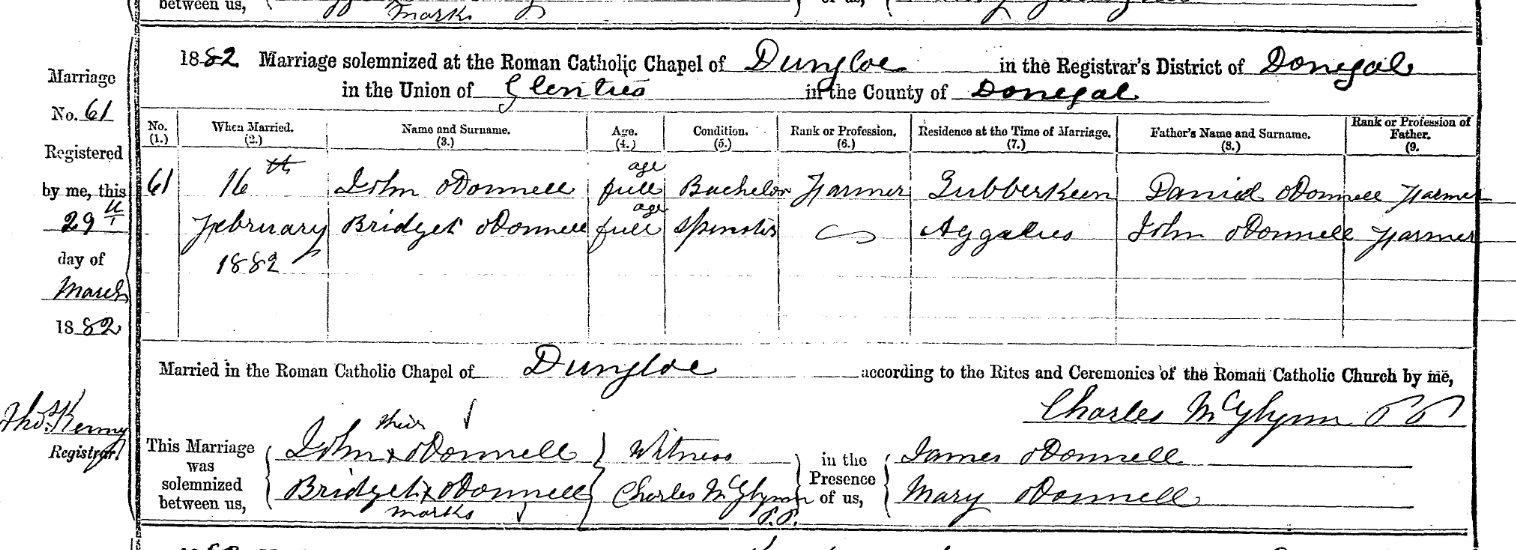 between us,
marks
of us,
1882 Marriage solemnized at the Roman Catholic Chapel of Dungloe in the Registrar's District of Donegal
in the Union of Glenties in the County of Donegal
Marriage
No. 61
Registered
by me, this
29th
day of
March
1882
Thos. Kenny
Registrar.
No. When Married. Name and Surname. Age. Condition. Rank or Profession. Residence at the Time of Marriage. Father's Name and Surname. Rank or Profession of Father.
(1.) (2.) (3.) (4.) (5.) (6.) (7.) (8.) (9.
61 16th John O'Donnell full age Bachelor Farmer Tubberkeen Daniel O'Donnell Farmer
February Bridget O'Donnell full age Spinster Farmer
John O'Donnell
1882
Married in the Roman Catholic Chapel of Dungloe according to the Rites and Ceremonies of the Roman Catholic Church by me,
Charles McGlynn P P
This Marriage was solemnized between us,
their
John x O'Donnell
Bridget x O'Donnell
marks
Witness
Charles McGlynn
P.P.
in the Presence of us,
James O'Donnell
Mary O'Donnell